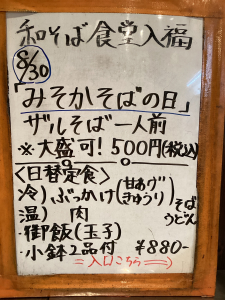 和そば食堂入福
8/30
「みそかそばの日」
ザルそば一人前
※大盛可! 500円(税込)
〈日替定食〉
冷)ぶっかけ(甘あげ きゅうり) そば
温) 肉 うどん
・御飯(玉子)
・小鉢2品付 ¥880-
=入口こちら⇒